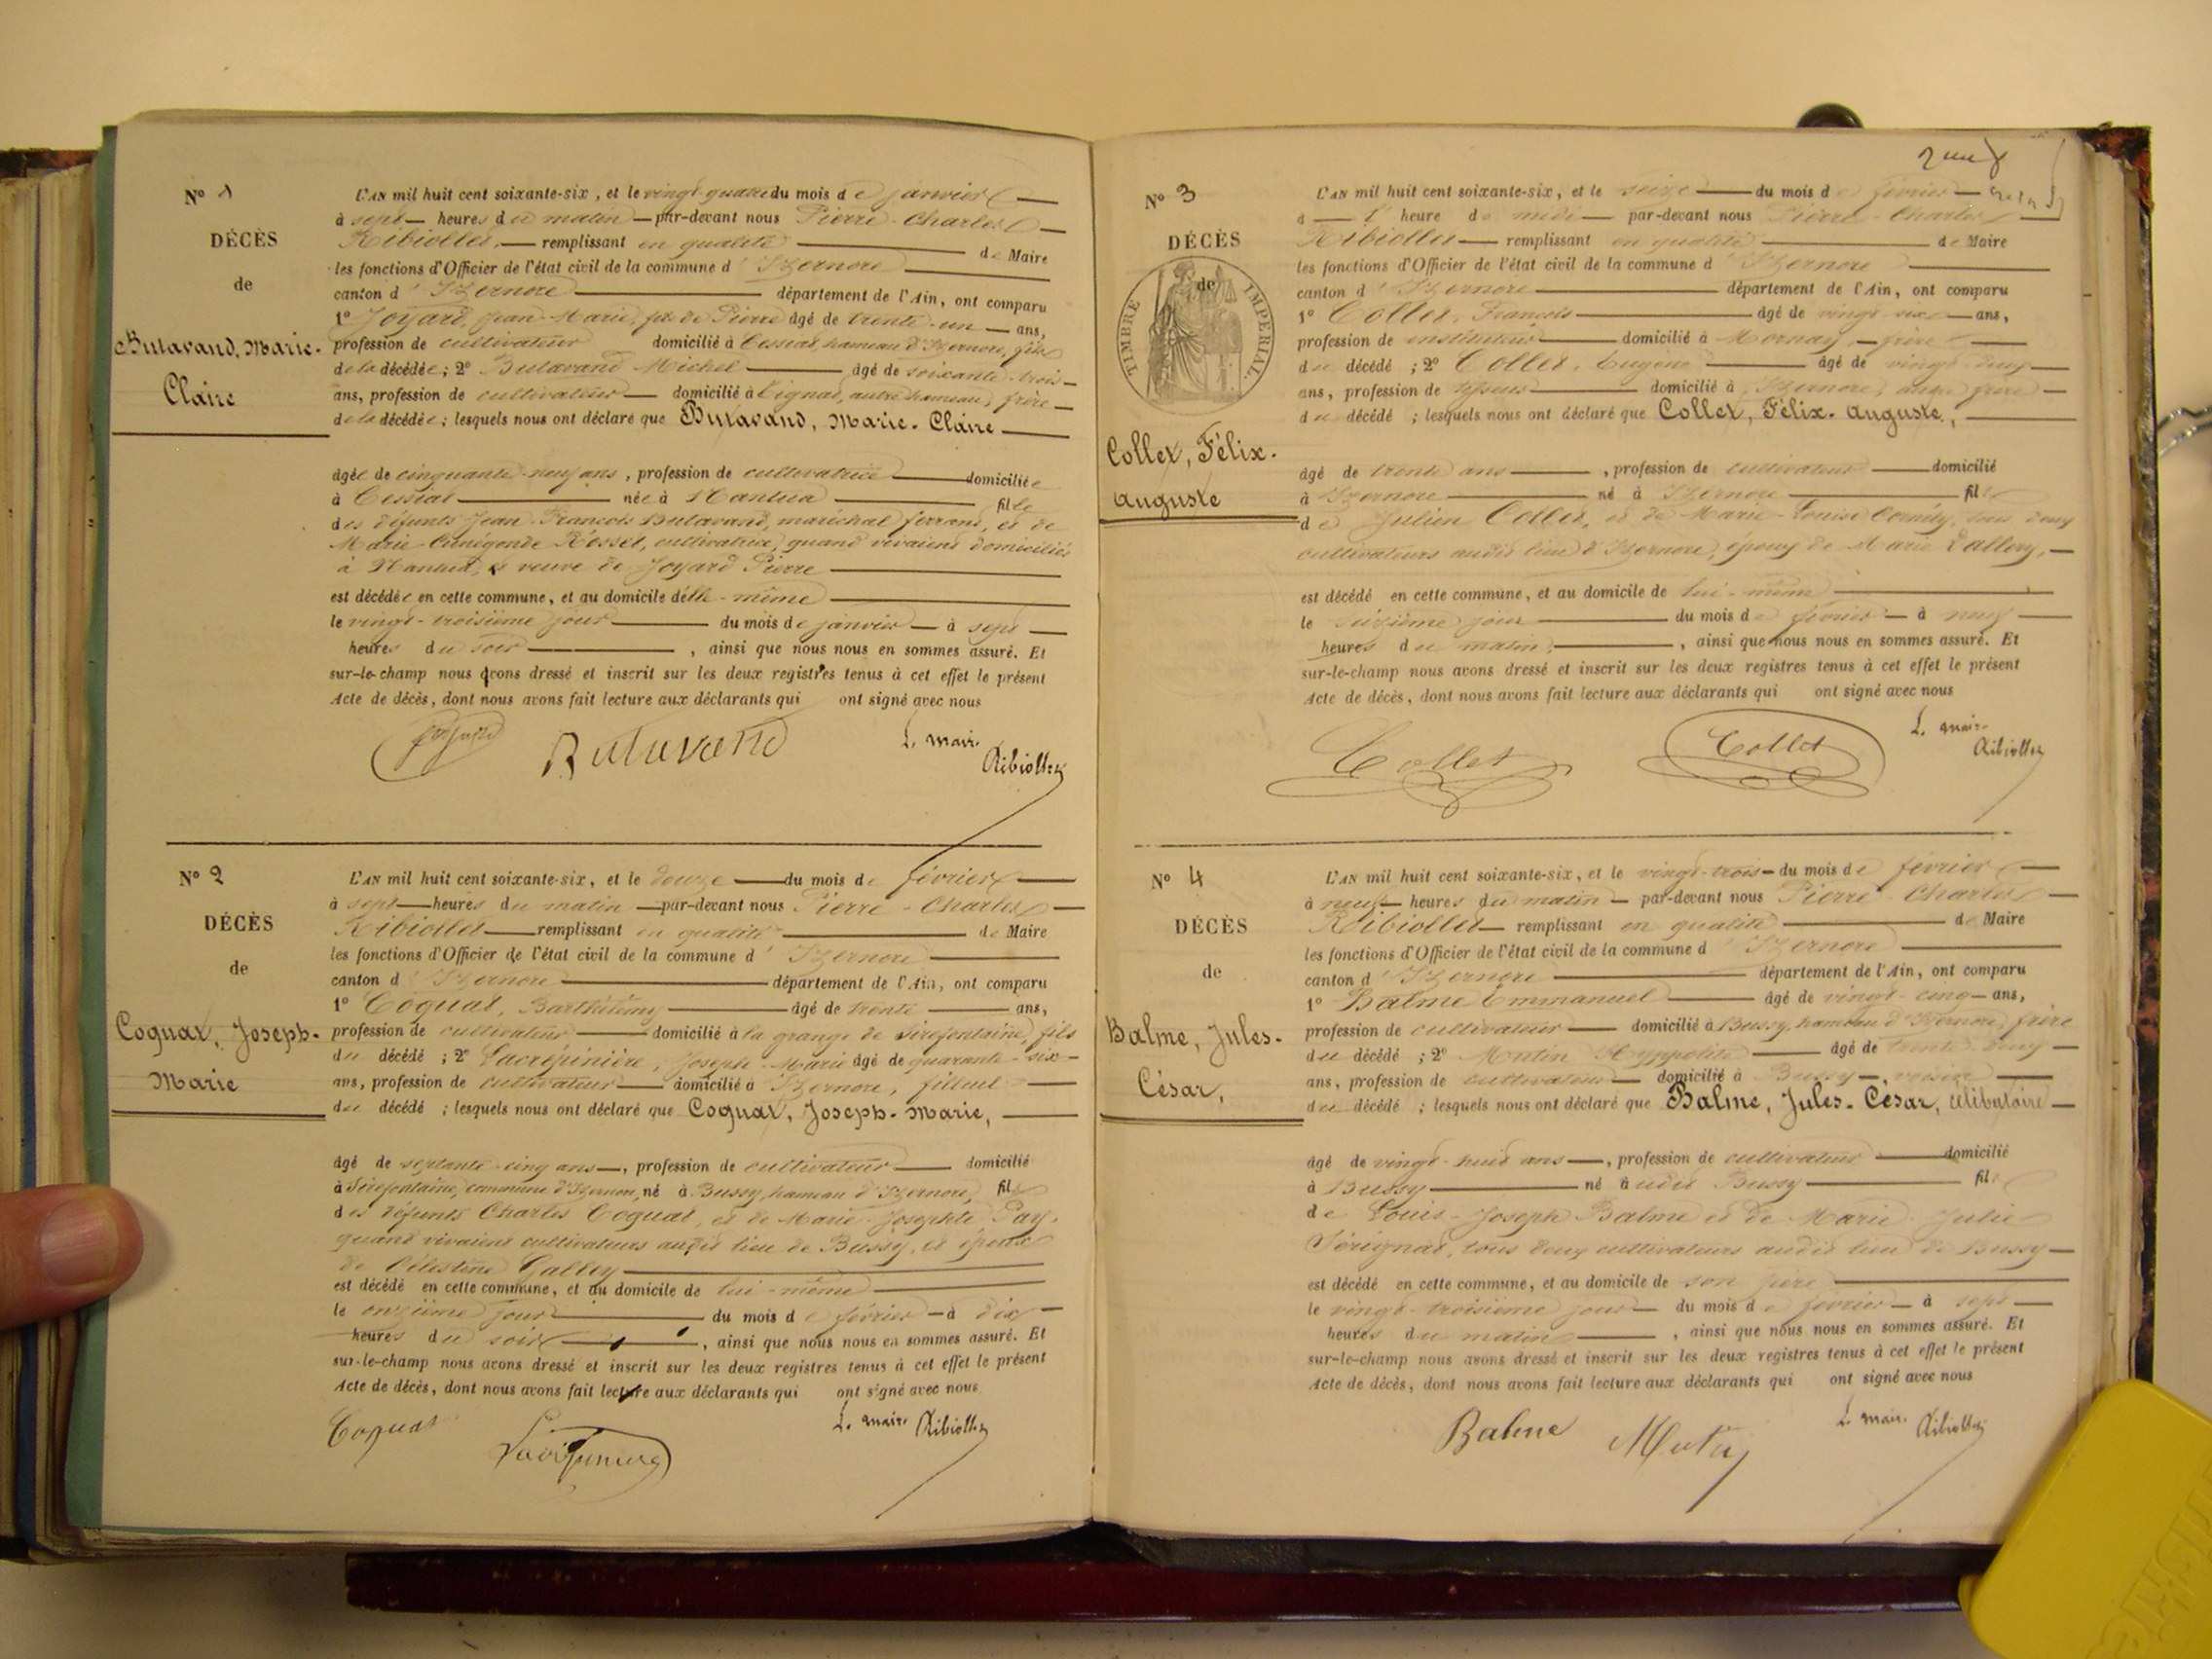 N° 1
DÉCÈS
de
Butavand, Marie-
Claire
L'AN mil huit cent soixante-six, et le vingt-quatre du mois de janvier
à sept heures du matin par-devant nous Pierre-Charles
Ribiollet, remplissant en qualité de Maire
les fonctions d'Officier de l'état civil de la commune d'Izernore
canton d'Izernore département de l'Ain, ont comparu
1° Joyard, Jean-Marie, fils de Pierre âgé de trente-un ans,
profession de cultivateur domicilié à Cessiat, hameau d'Izernore, fils
de la décédée; 2° Butavand Michel âgé de soixante-trois
ans, profession de cultivateur domicilié à Tignat, autre hameau, frère
de la décédée; lesquels nous ont déclaré que Butavand, Marie-Claire
âgée de cinquante-neuf ans, profession de cultivatrice domiciliée
à Cessiat née à Nantua fille
des défunts Jean-François Butavand, maréchal ferrant, et de
Marie-Cunégonde Rosset, cultivatrice, quand vivaient domiciliés
à Nantua, et veuve de Joyard Pierre
est décédée en cette commune, et au domicile d'elle-même
le vingt-troisième jour du mois de janvier à sept
heures du soir, ainsi que nous nous en sommes assuré. Et
sur-le-champ nous avons dressé et inscrit sur les deux registres tenus à cet effet le présent
Acte de décès, dont nous avons fait lecture aux déclarants qui ont signé avec nous
Joyard Butavand L. maire
Ribiollet
N° 2
DÉCÈS
de
Coquat, Joseph-
Marie
L'AN mil huit cent soixante-six, et le douze du mois de février
à sept heures du matin par-devant nous Pierre-Charles
Ribiollet remplissant en qualité de Maire
les fonctions d'Officier de l'état civil de la commune d'Izernore
canton d'Izernore département de l'Ain, ont comparu
1° Coquat, Barthélemy âgé de trente ans,
profession de cultivateur domicilié à la grange de Sirefontaine, fils
du décédé; 2° Lacrépinière, Joseph-Marie âgé de quarante-six
ans, profession de cultivateur domicilié à Izernore, filleul
du décédé; lesquels nous ont déclaré que Coquat, Joseph-Marie,
âgé de septante-cinq ans, profession de cultivateur domicilié
à Sirefontaine, commune d'Izernore, né à Bussy, hameau d'Izernore, fils
des défunts Charles Coquat, et de Marie-Josephte Pay,
quand vivaient cultivateurs audit lieu de Bussy, et époux
de Célestine Galley
est décédé en cette commune, et au domicile de lui-même
le onzième jour du mois de février à dix
heures du soir, ainsi que nous nous en sommes assuré. Et
sur-le-champ nous avons dressé et inscrit sur les deux registres tenus à cet effet le présent
Acte de décès, dont nous avons fait lecture aux déclarants qui ont signé avec nous
Coquat L. maire Ribiollet
N° 3
DÉCÈS
de
TIMBRE IMPÉRIAL
Collet, Félix-
Auguste
L'AN mil huit cent soixante-six, et le seize du mois de février
à l'heure de midi par-devant nous Pierre-Charles
Ribiollet remplissant en qualité de Maire
les fonctions d'Officier de l'état civil de la commune d'Izernore
canton d'Izernore département de l'Ain, ont comparu
1° Collet, François âgé de vingt-six ans,
profession de instituteur domicilié à Mornay, frère
du décédé; 2° Collet, Eugène âgé de vingt-deux
ans, profession de domicilié à Izernore, autre frère
du décédé; lesquels nous ont déclaré que Collet, Félix-Auguste,
âgé de trente ans, profession de cultivateur domicilié
à Izernore né à Izernore fils
de Julien Collet, et de Marie-Louise tous deux
cultivateurs audit lieu d'Izernore, époux de Marie
est décédé en cette commune, et au domicile de lui-même
le seizième jour du mois de février à neuf
heures du matin, ainsi que nous nous en sommes assuré. Et
sur-le-champ nous avons dressé et inscrit sur les deux registres tenus à cet effet le présent
Acte de décès, dont nous avons fait lecture aux déclarants qui ont signé avec nous
Collet Collet L. maire
Ribiollet
N° 4
DÉCÈS
de
Balme, Jules-
César,
L'AN mil huit cent soixante-six, et le vingt-trois du mois de février
à neuf heures du matin par-devant nous Pierre-Charles
Ribiollet remplissant en qualité de Maire
les fonctions d'Officier de l'état civil de la commune d'Izernore
canton d'Izernore département de l'Ain, ont comparu
1° Balme Emmanuel âgé de vingt-cinq ans,
profession de cultivateur domicilié à Bussy, hameau d'Izernore, frère
du décédé; 2° Mutin Hyppolite âgé de trente-deux
ans, profession de cultivateur domicilié à Bussy, voisin
du décédé; lesquels nous ont déclaré que Balme, Jules-César, célibataire
âgé de vingt-huit ans, profession de cultivateur domicilié
à Bussy né audit Bussy fils
de Louis-Joseph Balme et de Marie-Julie
Sérignat, tous deux cultivateurs audit lieu de Bussy
est décédé en cette commune, et au domicile de son père
le vingt-troisième jour du mois de février à sept
heures du matin, ainsi que nous nous en sommes assuré. Et
sur-le-champ nous avons dressé et inscrit sur les deux registres tenus à cet effet le présent
Acte de décès, dont nous avons fait lecture aux déclarants qui ont signé avec nous
Balme Mutin L. maire Ribiollet